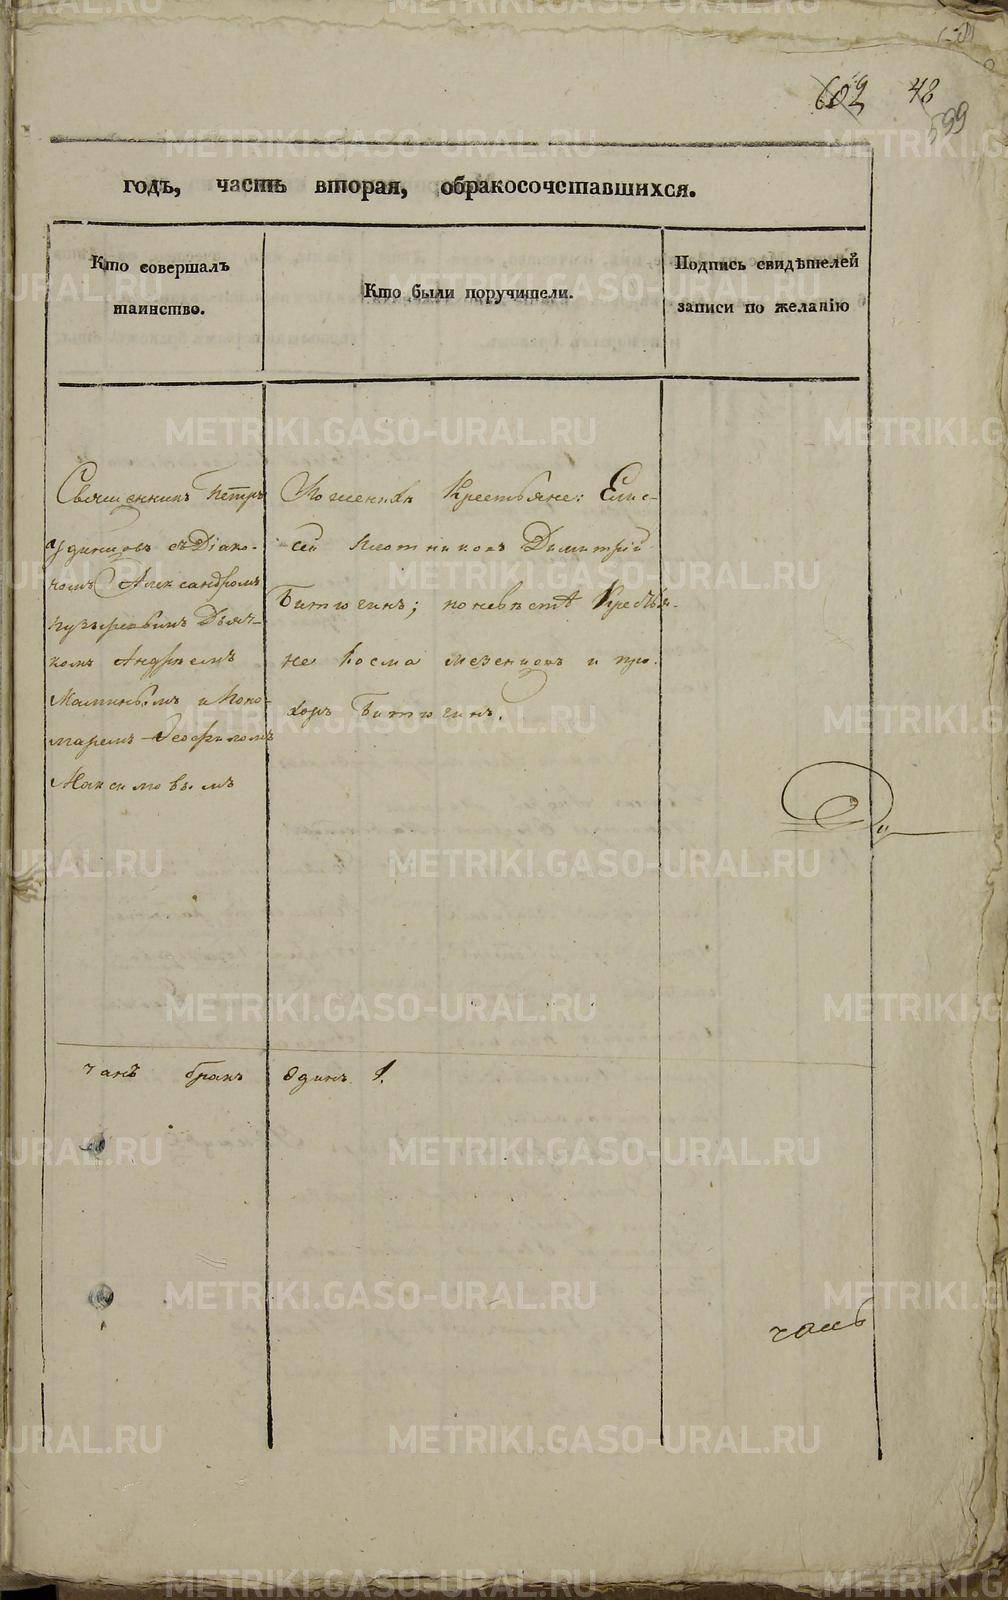 602 48
599
годъ, часть вторая, обракосочетавшихся.
Кто совершалъ
таинство.
Кто были поручители.
Подпись свидѣтелей
записи по желанію
Священникъ Петръ
Удинцовъ съ Діако-
номъ Александромъ
Пузыревымъ Дьяч-
комъ Андреемъ
Маминымъ и Поно-
маремъ Ѳеофиломъ
Максимовымъ
По женихѣ Крестьяне: Елис-
сей Плотниковъ Димитрій
Битюгинъ; по невѣстѣ Крестья-
не Косма Мезенцовъ и Про-
хоръ Битюгинъ.
бракъ одинъ 1.
METRIKI.GASO-URAL.RU